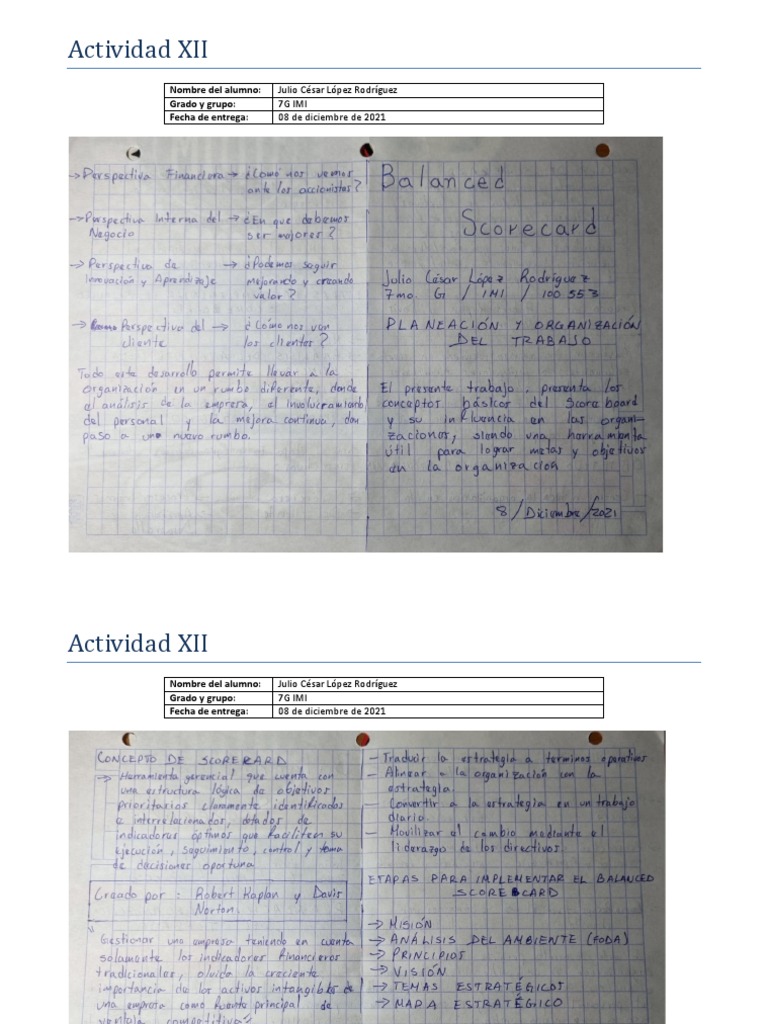 Actividad XII
Nombre del alumno: Julio César López Rodríguez
Grado y grupo: 7G IMI
Fecha de entrega: 08 de diciembre de 2021
→ Perspectiva Financiera → ¿Como nos vemos
ante los accionistas?
→ Perspectiva Interna del → ¿En que debemos
Negocio ser mejores?
→ Perspectiva de → ¿Podemos seguir
Innovación y Aprendizaje mejorando y creando
valor?
→ Perspectiva del → ¿Cómo nos ven
cliente los clientes?
Todo este desarrollo permite llevar a la
organización en un rumbo diferente, donde
el análisis de la empresa, el involucramiento
del personal y la mejora continua, dan
paso a un nuevo rumbo.
Balanced
Scorecard
Julio César López Rodriguez
7mo G / IMI / 100553
PLANEACIÓN Y ORGANIZACIÓN
DEL TRABAJO
El presente trabajo, presenta los
conceptos básicos del Scoreboard
y su influencia en las organi-
zaciones, siendo una herramienta
útil para lograr metas y objetivos
en la organización
8/Diciembre/2021
Actividad XII
Nombre del alumno: Julio César López Rodríguez
Grado y grupo: 7G IMI
Fecha de entrega: 08 de diciembre de 2021
CONCEPTO DE SCORECARD
→ Herramienta gerencial que cuenta con
una estructura lógica de objetivos
prioritarios claramente identificados
e interrelacionados, dotados de
indicadores óptimos que faciliten su
ejecución, seguimiento, control y toma
de decisiones oportuna
Creado por : Robert Kaplan y Davis
Norton.
Gestionar una empresa teniendo en cuenta
solamente los indicadores financieros
tradicionales, olvida la creciente
importancia de los activos intangibles de
una empresa como fuente principal de
ventaja competitiva
- Traducir la estrategia a terminos operativos
- Alinear a la organización con la
estrategia.
- Convertir a la estrategia en un trabajo
diario.
- Movilizar el cambio mediante el
liderazgo de los directivos.
ETAPAS PARA IMPLEMENTAR EL BALANCED
SCORECARD
→ MISIÓN
→ ANÁLISIS DEL AMBIENTE (FODA)
→ PRINCIPIOS
→ VISIÓN
→ TEMAS ESTRATÉGICOS
→ MAPA ESTRATÉGICO